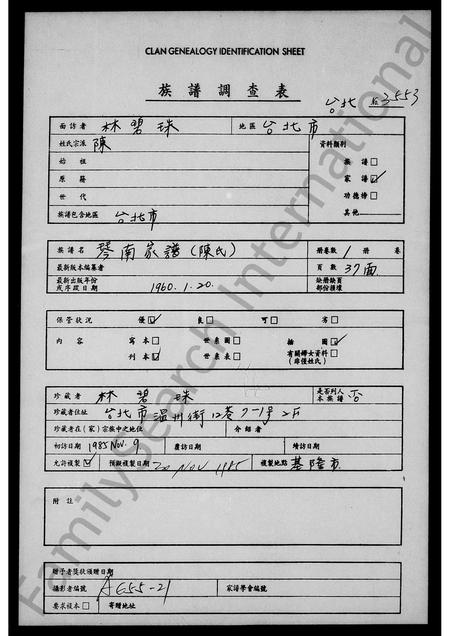 CLAN GENEALOGY IDENTIFICATION SHEET
族譜調查表
台北 3553
面訪者 林碧珠 地區 台北市
姓氏宗派 陳 資料類別
始祖 族譜□
原籍 家譜☑
世代 功德榜□
族譜包含地區 台北市 其他
族譜名 琴南家譜(陳氏) 册卷數 1 册 卷
最新版本編纂者 頁數 37面
最新出版年份或序跋日期 1960.1.20. 缺册缺頁部份損壞
保管狀況 優☑ 良□ 可□ 劣□
內容 寫本□ 世系圖□ 插圖☑
刊本☑ 世系表□ 有關婦女資料□(非僅姓氏)
珍藏者 林碧珠 是否列入本族譜 否
珍藏者住址 台北市溫州街12巷7-1號2F
珍藏者在(家)宗族中之地位 介紹者
初訪日期 1985 Nov. 9 應訪日期 續訪日期
允許複製☑ 預擬複製日期 20 NOV 1985 複製地點 基隆市
附註
贈予者獎狀頒贈日期
攝影者編號 AG55-21 家譜學會編號
要求複本□ 寄贈地址
FamilySearch International